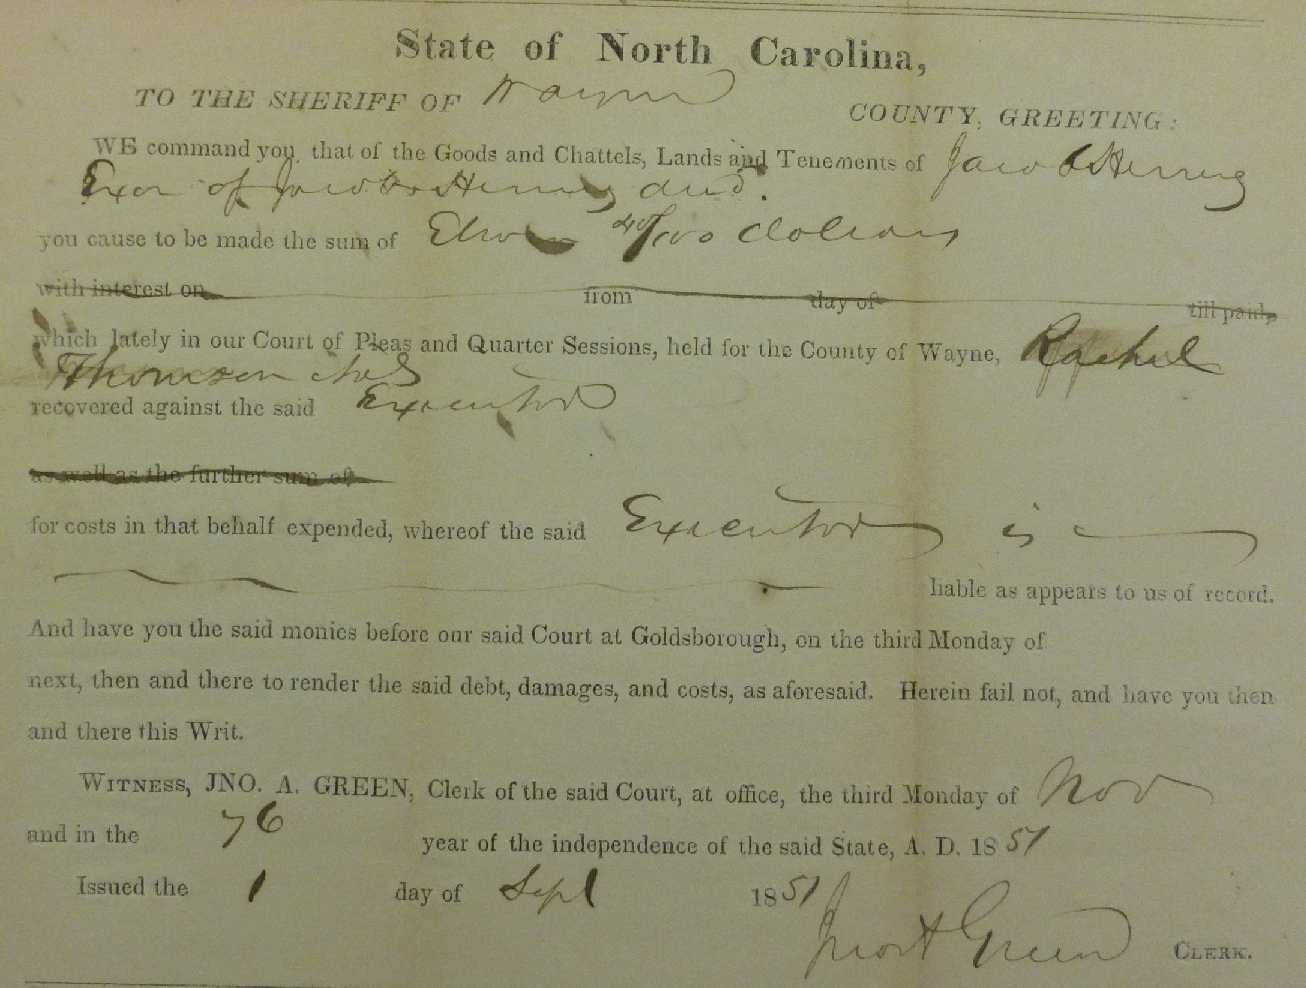 State of North Carolina,
TO THE SHERIFF OF Wayne COUNTY, GREETING:
WE command you, that of the Goods and Chattels, Lands and Tenements of Jacob Herring
Exor of Jacob Herring decd.
you cause to be made the sum of 40/100 dollars
with interest on from day of till paid,
which lately in our Court of Pleas and Quarter Sessions, held for the County of Wayne, Rachel
Thomson
recovered against the said Executor
as well as the further sum of
for costs in that behalf expended, whereof the said Executor is
liable as appears to us of record.
And have you the said monies before our said Court at Goldsborough, on the third Monday of
next, then and there to render the said debt, damages, and costs, as aforesaid. Herein fail not, and have you then
and there this Writ.
WITNESS, JNO. A. GREEN, Clerk of the said Court, at office, the third Monday of Nov
and in the 76 year of the independence of the said State, A. D. 1851
Issued the 1 day of Sept 1851
Jno A Green CLERK.